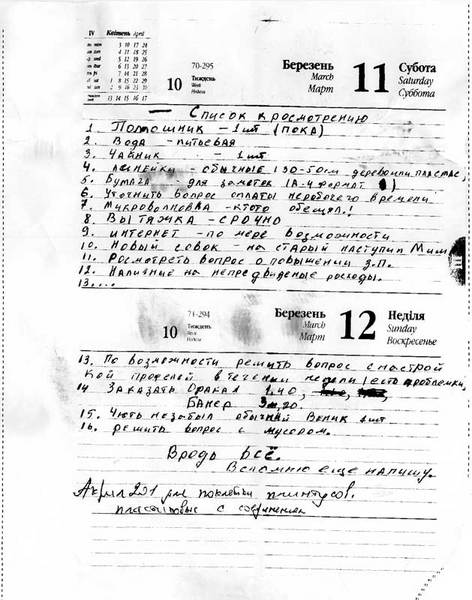 IV Квітень April
70-295
10 Тиждень
Week
Неделя
Березень
March
Март
11
Субота
Saturday
Суббота
— Список к росмотрению
1. Помошник – 1 шт (пока)
2. Вода – питьевая
3. Чайник 1 шт
4. обычные
5. Бумага для заметок (А-4 формат)
6. Уточнить вопрос оплаты нерабочего времени
7. Микроволновка – кто то обещал!
8. Вытяжка – срочно
9. интернет – по мере возможности
10. Новый совок – на старый наступил Миш
11. Росмотреть вопрос о повышении З.П.
12. Наличние на непредвиденые росходы.
13....
71-294
10 Тиждень
Week
Неделя
Березень
March
Март
12
Неділя
Sunday
Воскресенье
13. По возможности решить вопрос с настрой
кой в течении недели (есть проблемки
14 Заказать Оракал 1,40,
Банер 3,20.
15. Чють незабыл обычный Веник 1 шт
16. решить вопрос с мусором.
Вродь Всё.
Вспомню еще напишу.
для поклейки плинтусов.
с соединением